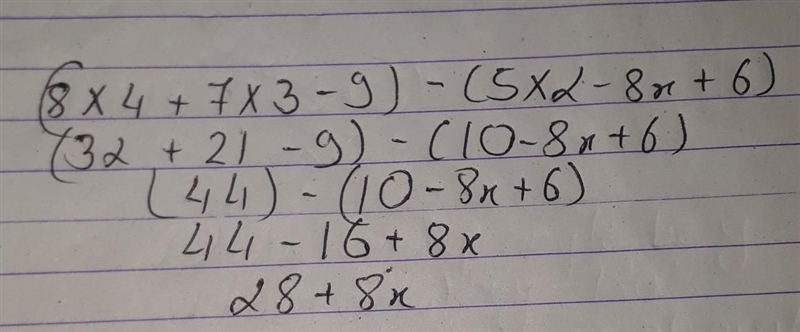 (8 × 4 + 7 × 3 - 9) - (5 × 2 - 8x + 6)
(32 + 21 - 9) - (10 - 8x + 6)
(44) - (10 - 8x + 6)
44 - 16 + 8x
28 + 8x